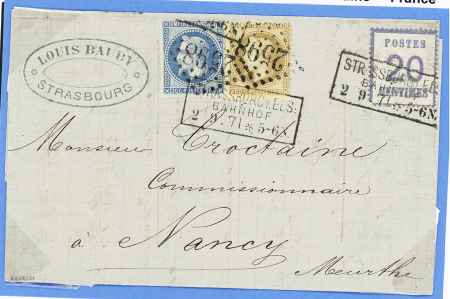 France
LOUIS BAUBY
STRASBOURG
2598
2598
STRASSBURG I. ELS.
BAHNHOF
2 9. 71 * 5-6N.
POSTES
20
CENTIMES
BAHNHOF
2 9. 71 * 5-6N.
Monsieur Croctaine
Commissionnaire
à Nancy
Meurthe